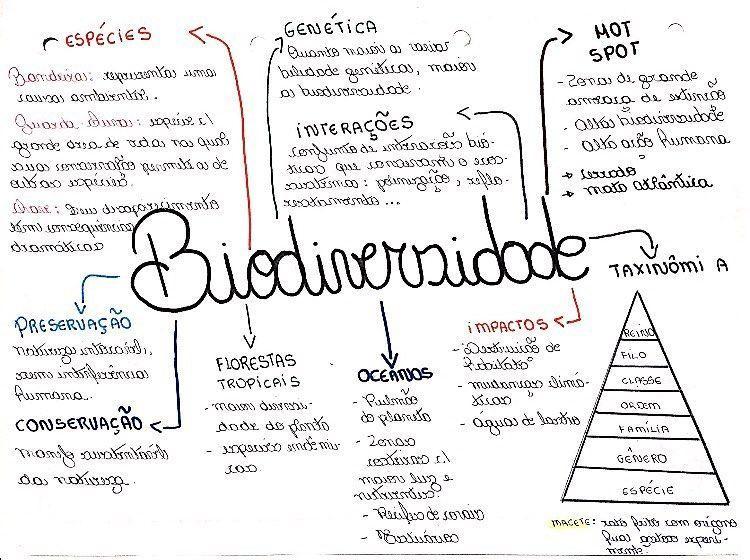 ESPÉCIES
Bandeiras: representa uma
causa ambiental...
Guarda-chuva: espécie c/
grande área de vida na qual
sua conservação permite a de
outras espécies.
Chave: Seu desaparecimento
tem consequências
dramáticas
GENÉTICA
Quanto maior a varia
bilidade genética, maior
a biodiversidade.
INTERAÇÕES
conjunto de interações bió-
ticas que conservam o ecos-
sistema: polinização, reflo-
restamento...
HOT
SPOT
- Zona de grande
ameaça de extinção
- Alta biodiversidade
- Alta ação humana
→ cerrado
→ mata atlântica
Biodiversidade
PRESERVAÇÃO
natureza intocável,
sem interferência
humana.
CONSERVAÇÃO
manejo sustentável
da natureza.
FLORESTAS
TROPICAIS
- maior diversi-
dade do planeta
- espécies endêmi-
cas
OCEANOS
- Pulmão
do planeta
- Zonas
costeiras c/
maior luz e
nutrientes
- Recifes de corais
IMPACTOS
- Destruição de
habitats
- mudanças climá-
ticas
- águas de lastro
TAXINÔMIA
REINO
FILO
CLASSE
ORDEM
FAMÍLIA
GÊNERO
ESPÉCIE
MACETE: rato feito com orégano
fica gostoso experi-
mente.